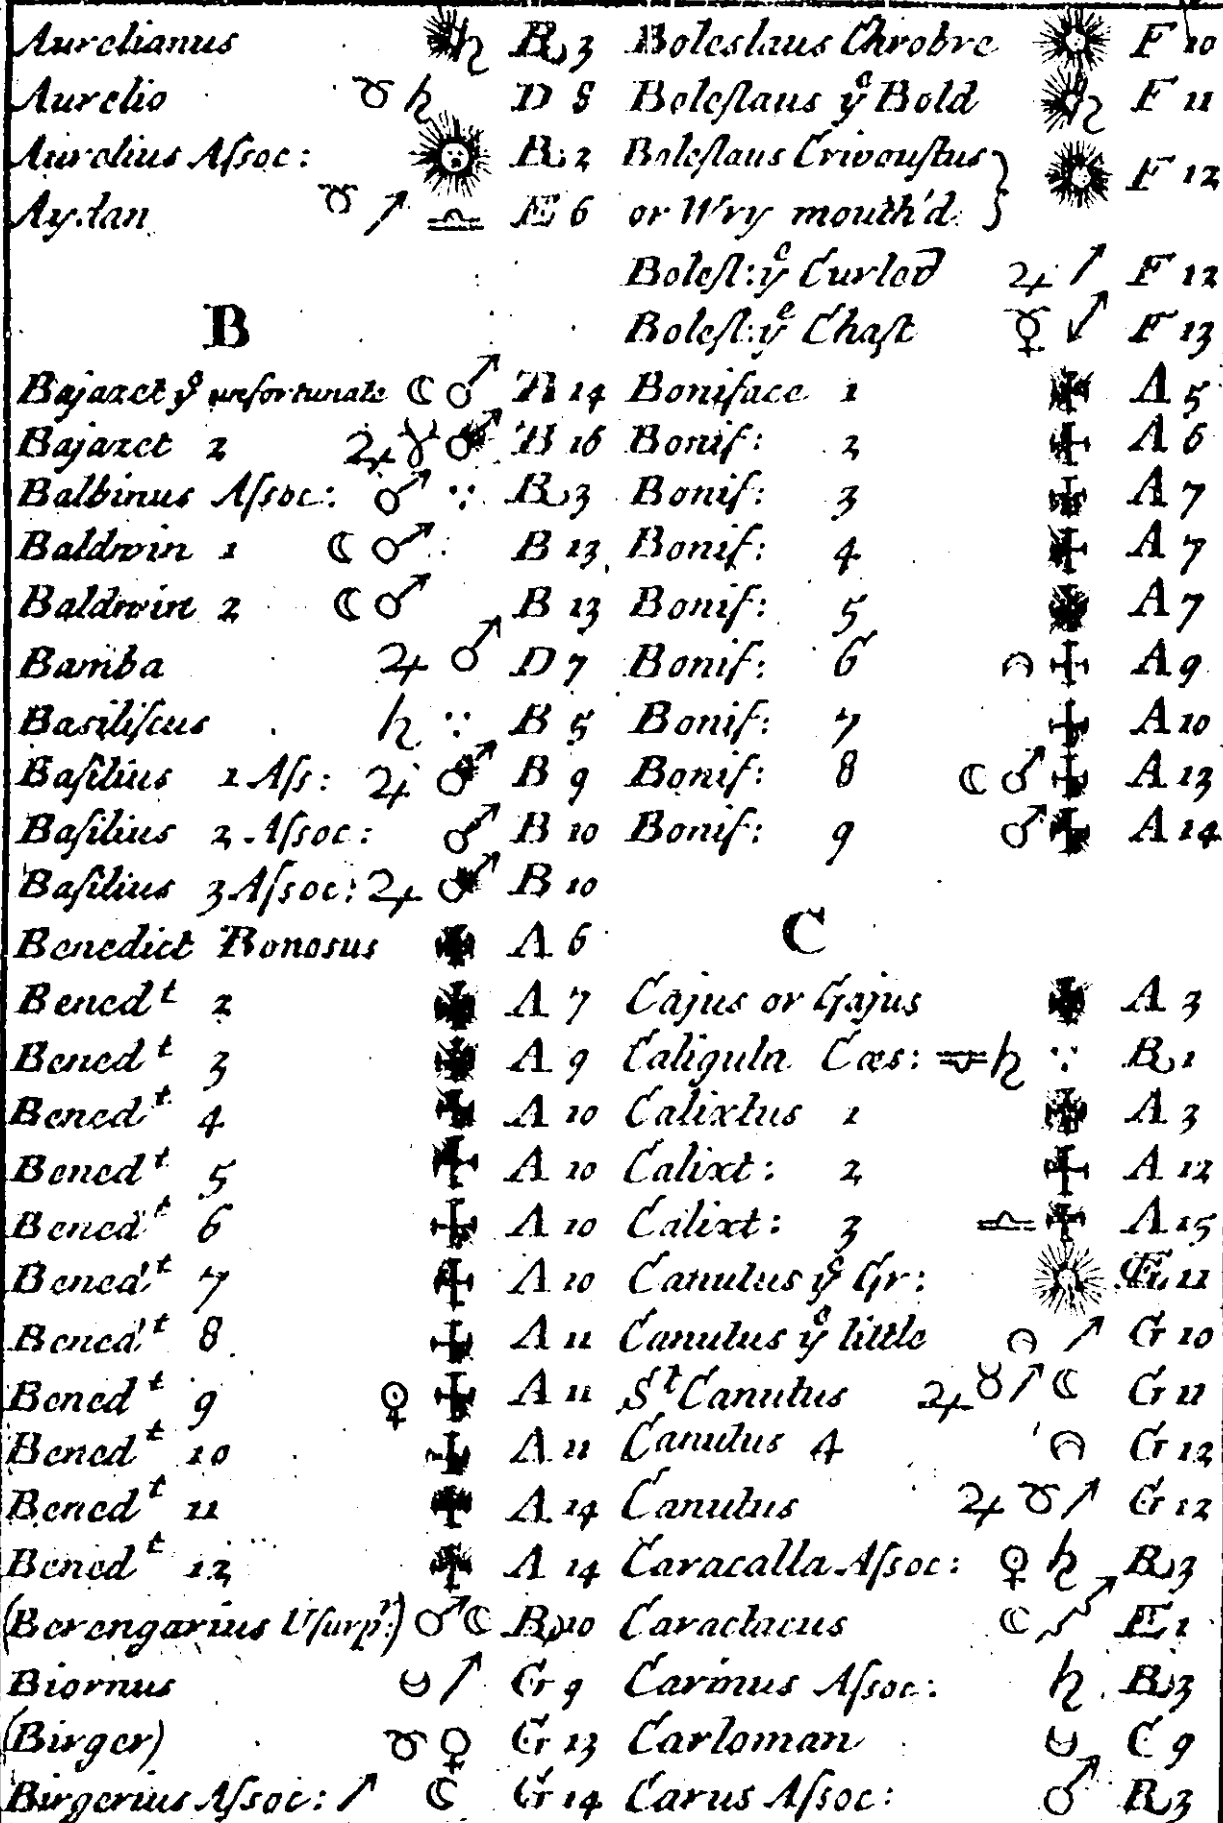 Aurelianus ♄ R 3
Aurelio ♉ ♄ D 8
Aurelius Aſsoc: R 2
Aydan ♉ ↗ ♎ E 6
B
Bajazet yͤ unfortunate ☾ ♂ B 14
Bajazet 2 ♃ ♈ ♂ B 16
Balbinus Aſsoc: ♂ ∵ R 3
Baldwin 1 ☾ ♂ B 13
Baldwin 2 ☾ ♂ B 13
Bamba ♃ ♂ D 7
Basiliſcus ♄ ∵ B 5
Baſilius 1 Aſs: ♃ ♂ B 9
Baſilius 2 Aſsoc: ♂ B 10
Baſilius 3 Aſsoc: ♃ ♂ B 10
Benedict Bonosus ✠ A 6
Benedᵗ 2 ✠ A 7
Benedᵗ 3 ✠ A 9
Benedᵗ 4 ✠ A 10
Benedᵗ 5 ✠ A 10
Benedᵗ 6 ✠ A 10
Benedᵗ 7 ✠ A 10
Benedᵗ 8 ✠ A 11
Benedᵗ 9 ♀ ✠ A 11
Benedᵗ 10 ✠ A 11
Benedᵗ 11 ✠ A 14
Benedᵗ 12 ✠ A 14
(Berengarius Uſurpʳ:) ♂ ☾ R 10
Biornus ↗ G 9
(Birger) ♉ ♀ G 13
Birgerius Aſsoc: ↗ ☾ G 14
Boleslaus Chrobre F 10
Boleſlaus yͤ Bold ♄ F 11
Boleſlaus Crivouſtus } F 12
or Wry mouth'd }
Boleſl: yͤ Curled ♃ ↗ F 12
Boleſl: yͤ Chaſt F 13
Boniface 1 ✠ A 5
Bonif: 2 ✠ A 6
Bonif: 3 ✠ A 7
Bonif: 4 ✠ A 7
Bonif: 5 ✠ A 7
Bonif: 6 ✠ A 9
Bonif: 7 ✠ A 10
Bonif: 8 ☾ ♂ ✠ A 13
Bonif: 9 ♂ ✠ A 14
C
Cajus or Gajus ✠ A 3
Caligula Cæs: ♄ ∵ R 1
Calixtus 1 ✠ A 3
Calixt: 2 ✠ A 12
Calixt: 3 ♎ ✠ A 15
Canutus yͤ Gr: 11
Canutus yͤ little ↗ G 10
Sᵗ Canutus ♃ ♉ ↗ ☾ G 11
Canutus 4 G 12
Canutus ♃ ♉ ↗ G 12
Caracalla Aſsoc: ♀ ♄ R 3
Caractacus ☾ E 1
Carinus Aſsoc: ♄ R 3
Carloman C 9
Carus Aſsoc: ♂ R 3